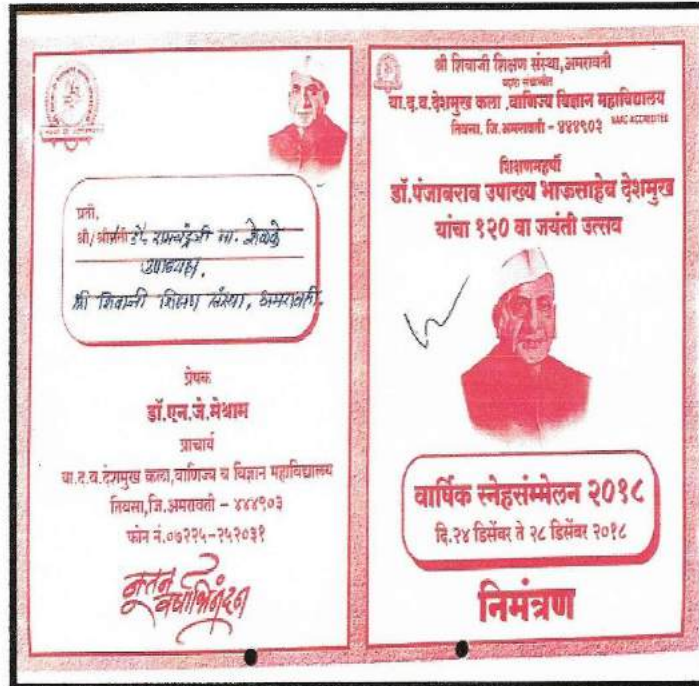 प्रती,
श्री/श्रीमती डॉ. रामचंद्रजी ना. शेळके
उपाध्यक्ष.
श्री शिवाजी शिक्षण संस्था, अमरावती.
प्रेषक
डॉ.एन.जे.मेश्राम
प्राचार्य
या.द.व.देशमुख कला,वाणिज्य व विज्ञान महाविद्यालय
तिवसा,जि.अमरावती - ४४४९०३
फोन नं.०७२२५-२५२०३१
नूतन
वर्षाभिनंदन
श्री शिवाजी शिक्षण संस्था,अमरावती
द्वारा संचालित
या.द.व.देशमुख कला ,वाणिज्य विज्ञान महाविद्यालय
तिवसा, जि.अमरावती - ४४४९०३ NAAC ACCREDITED
शिक्षणमहर्षी
डॉ.पंजाबराव उपाख्य भाऊसाहेब देशमुख
यांचा १२० वा जयंती उत्सव
वार्षिक स्नेहसंम्मेलन २०१८
दि.२४ डिसेंबर ते २८ डिसेंबर २०१८
निमंत्रण